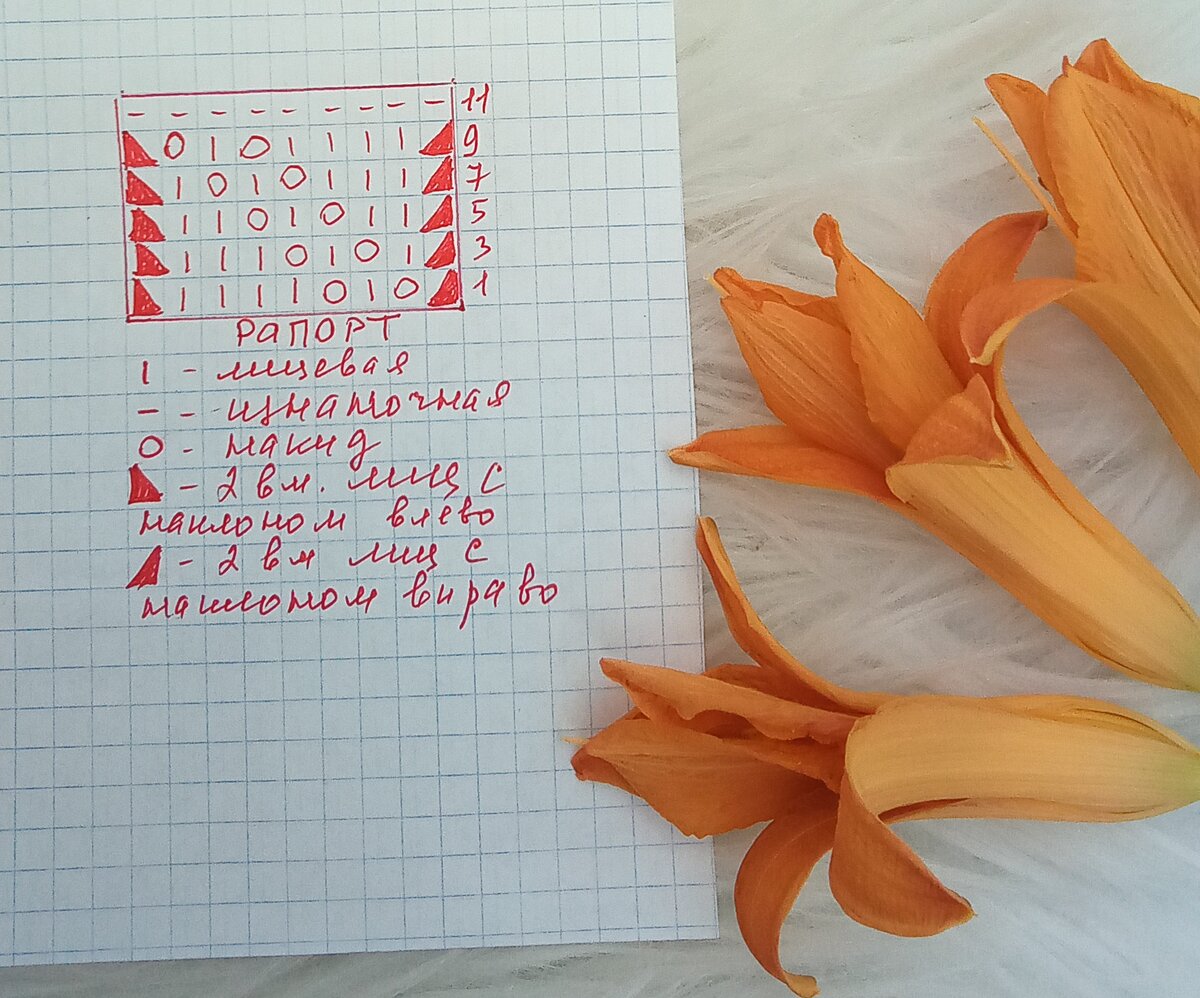 - - - - - - - - - 11
◣ O I O I I I I ◢ 9
◣ I O I O I I I ◢ 7
◣ I I O I O I I ◢ 5
◣ I I I O I O I ◢ 3
◣ I I I I O I O ◢ 1
РАПОРТ
I - лицевая
- - изнаночная
O - накид
◣ - 2 вм. лиц с
наклоном влево
◢ - 2 вм лиц с
наклоном вправо